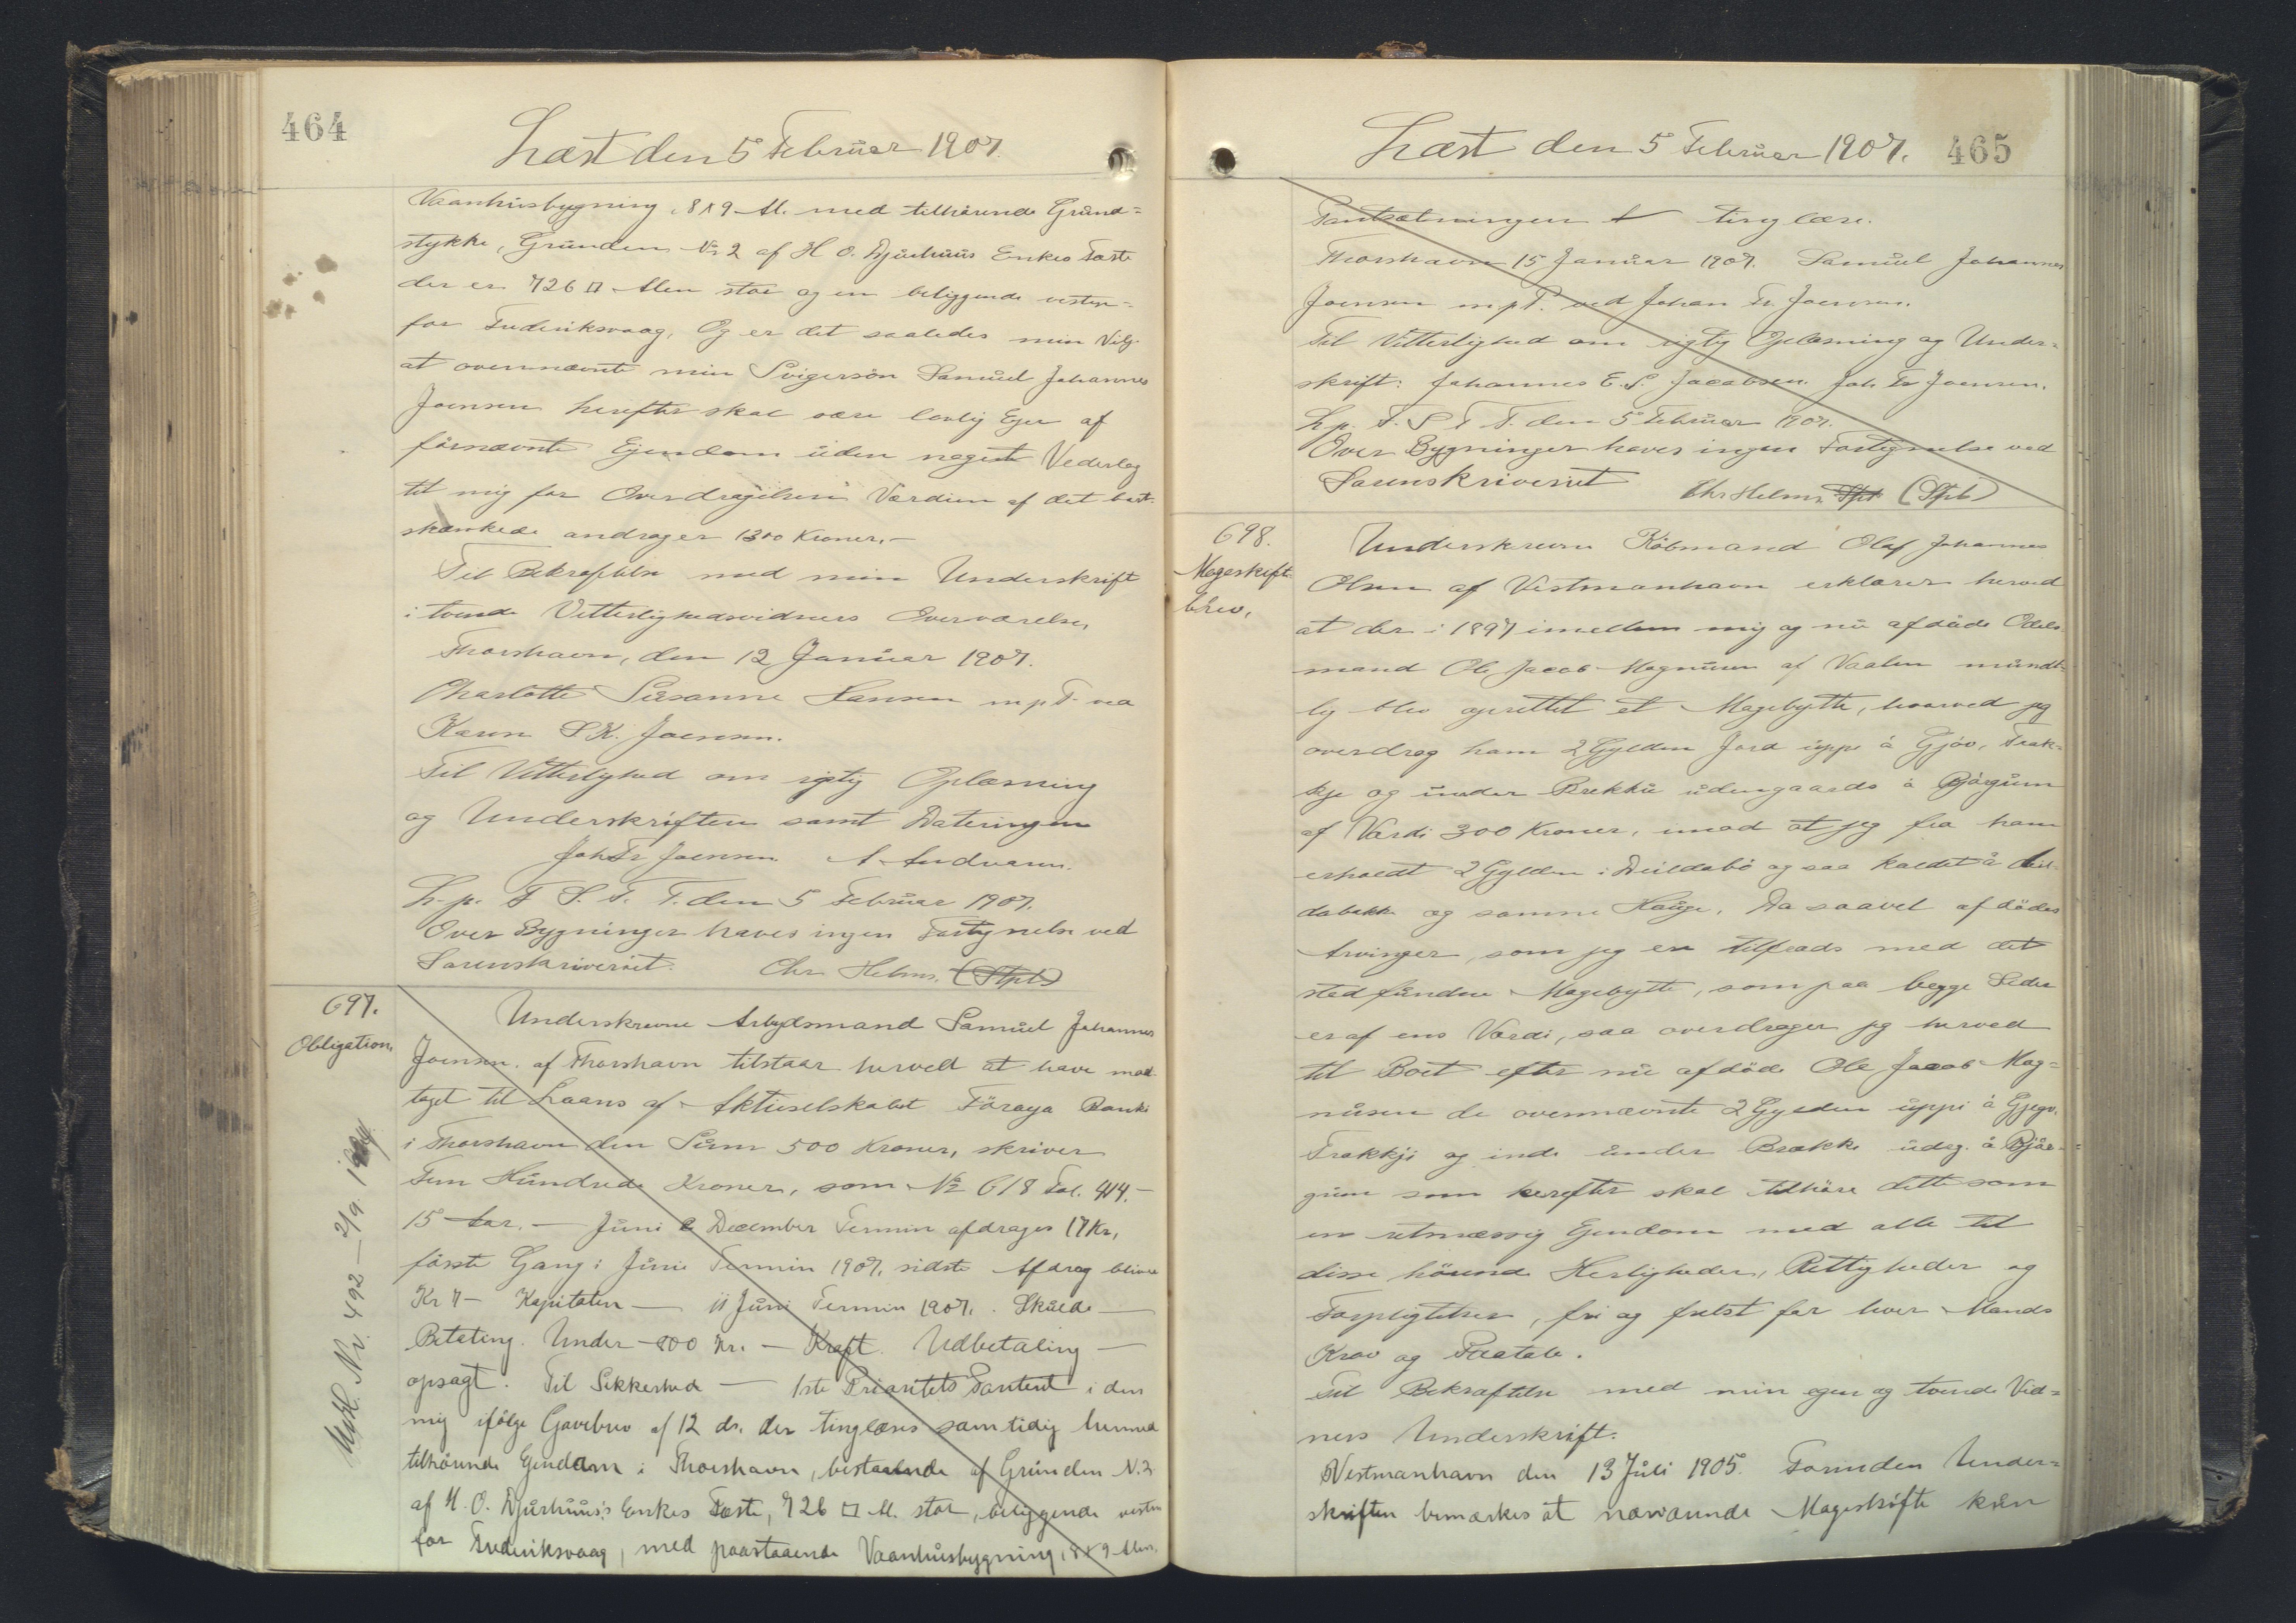 464
Læst den 5 Februar 1907.
Vaanhusbygning, 8 x 9 Al. med tilhørende Grund=
stykke, Grunden No 2 af H O. Djurhuus Enkes Fæste
der er 726 □ Alen stor og en beliggende vesten=
for Frederiksvaag, Og er det saaledes min Vilje
at ovennævnte min Svigersøn Samuel Johannes
Joensen herefter skal være lovlig Ejer af
førnævnte Ejendom uden nogent Vederlag
til mig for Overdragelsen Værdien af det bort-
skænkede andrager 1300 Kroner.—
Til Bekræftelse med min Underskrift
i tvende Vitterlighedsvidners Overværelse,
Thorshavn, den 12 Januar 1907.
Charlotte Susanne Hansen m p P. ved
Karen S K. Joensen.
Til Vitterlighed om rigtig Oplæsning
og Underskriften samt Dateringen
Joh Fr Joensen A Andreasen.
L. p. F S. T. T. den 5 Februar 1907.
Over Bygninger haves ingen Fortegnelse ved
Sorenskriveriet. Chr Helms. (Stpl)
697.
Obligation.
Underskrevne Arbejdsmand Samuel Johannes
Joensen. af Thorshavn tilstaar herved at have mod-
taget til Laans af Aktieselskabet Föroya Banki
i Thorshavn den Sum 500 Kroner, skriver
Fem Hundrede Kroner, som No 618 Fol. 414.—
15 Aar.— Juni & December Termin afdrages 17 Kr,
første Gang i Juni Termin 1907, sidste Afdrag bliver
Kr 7— Kapitalen — 11 Juni Termin 1907. Skulde —
Betaling. Under — 800 Kr. — Kraft. Udbetaling —
opsagt. Til Sikkerhed — 1ste Prioritets Panteret i den
mig ifølge Gavebrev af 12 ds. der tinglæses samtidig hermed
tilhørende Ejendom i Thorshavn, bestaaende af Grunden N. 2
af H. O. Djurhuus's Enkes Fæste, 726 □ Al. stor, beliggende vesten
for Frederiksvaag, med paastaaende Vaanhusbygning, 8 x 9 Alen,
Nr. 492 — 2/9. 19
Læst den 5 Februar 1907. 465
Pantsætningen tinglæse.
Thorshavn 15 Januar 1907. Samuel Johannes
Joensen m p P. ved Johan Fr Joensen.
Til Vitterlighed om rigtig Oplæsning og Under=
skrift: Johannes E. S. Jacobsen. Joh. Fr Joensen.
L. p. F. S T T. den 5 Februar 1907.
Over Bygninger haves ingen Fortegnelse ved
Sorenskriveriet Chr Helms Stpl (Stpl)
698.
Mageskift-
brev.
Underskrevne Købmand Olaf Johannes
Olsen af Vestmanhavn erklærer herved
at der i 1897 imellem mig og nu afdøde Odels-
mand Ole Jacob Magnusen af Vaalen mundt-
lig blev oprettet et Magebytte, hvorved jeg
overdrog ham 2 Gylden Jord uppi á Gjóv, Trak-
kje og under Brekku udengaards á Bjørgum
af Værdi 300 Kroner, imod at jeg fra ham
erholdt 2 Gylden i Deildabø og saa kaldet á Deil-
dabakke og somme Hauge. Da saavel afdødes
Arvinger, som jeg er tilfreds med det
stedfundne Magebytte, som paa begge Sider
er af ens Værdi, saa overdrager jeg herved
til Boet efter nu afdøde Ole Jacob Mag=
nusen de ovennævnte 2 Gylden uppi á Gjegv,
Trakkji og inde under Brekke udeg. á Bjør=
gum som herefter skal tilhøre dette som
en retmæssig Ejendom med alle til
disse hørende Herligheder, Rettigheder og
Forpligtelser, fri og frelst for hver Mands
Krav og Paatale.
Til Bekræftelse med min egen og tvende Vid=
ners Underskrift.
Vestmanhavn den 13 Juli 1905. Forinden Under=
skriften bemærkes at nærværende Mageskifte kun